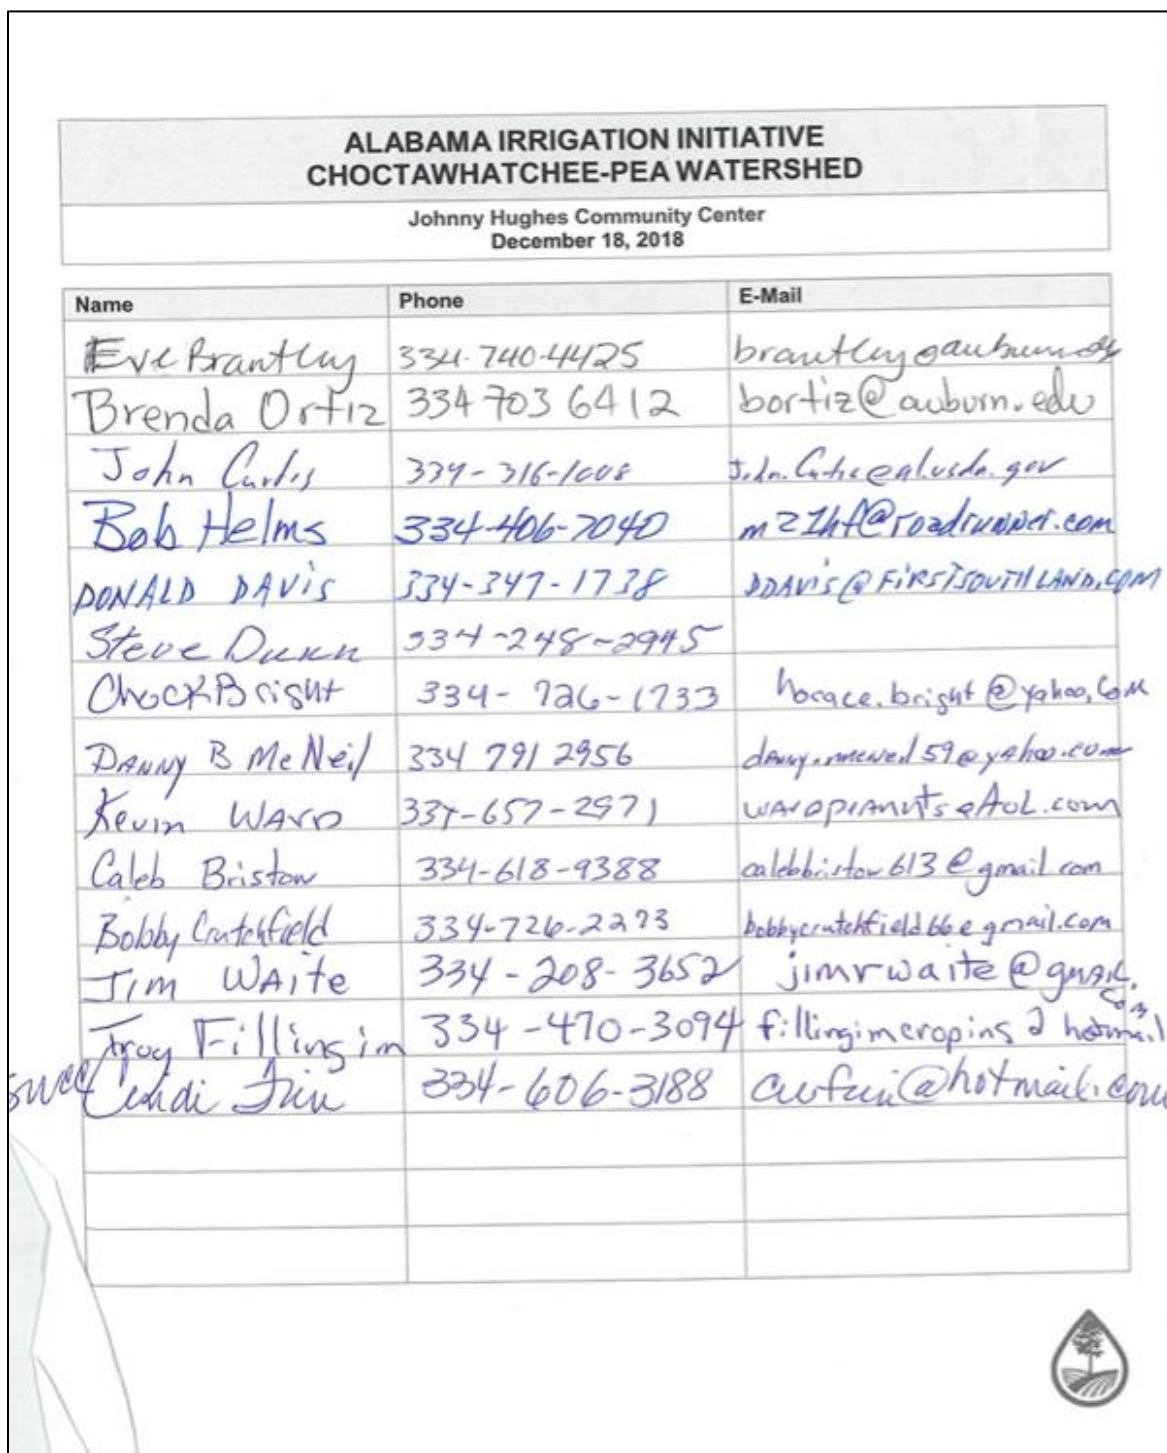 ALABAMA IRRIGATION INITIATIVE
CHOCTAWHATCHEE-PEA WATERSHED
Johnny Hughes Community Center
December 18, 2018
Name Phone E-Mail
Eve Brantley 334-740-4425
Brenda Ortiz 334 703 6412 bortiz@auburn.edu
John Curtis 334-316-1008
Bob Helms 334-406-7040 m21hf@roadrunner.com
DONALD DAVIS 334-347-1738 DDAVIS@FIRSTSOUTHLAND.COM
Steve Dunn 334-248-2945
Chock Bright 334-726-1733 horace.bright@yahoo.com
DANNY B McNeil 334 791 2956
Kevin WARD 334-657-2971 WARDPEANUTS@AOL.com
Caleb Bristow 334-618-9388 calebbristow613@gmail.com
Bobby Crutchfield 334-726-2273 bobbycrutchfield66@gmail.com
Jim WAite 334-208-3652 jimrwaite@gmail.com
Troy Fillingim 334-470-3094 fillingimcropins@hotmail
334-606-3188